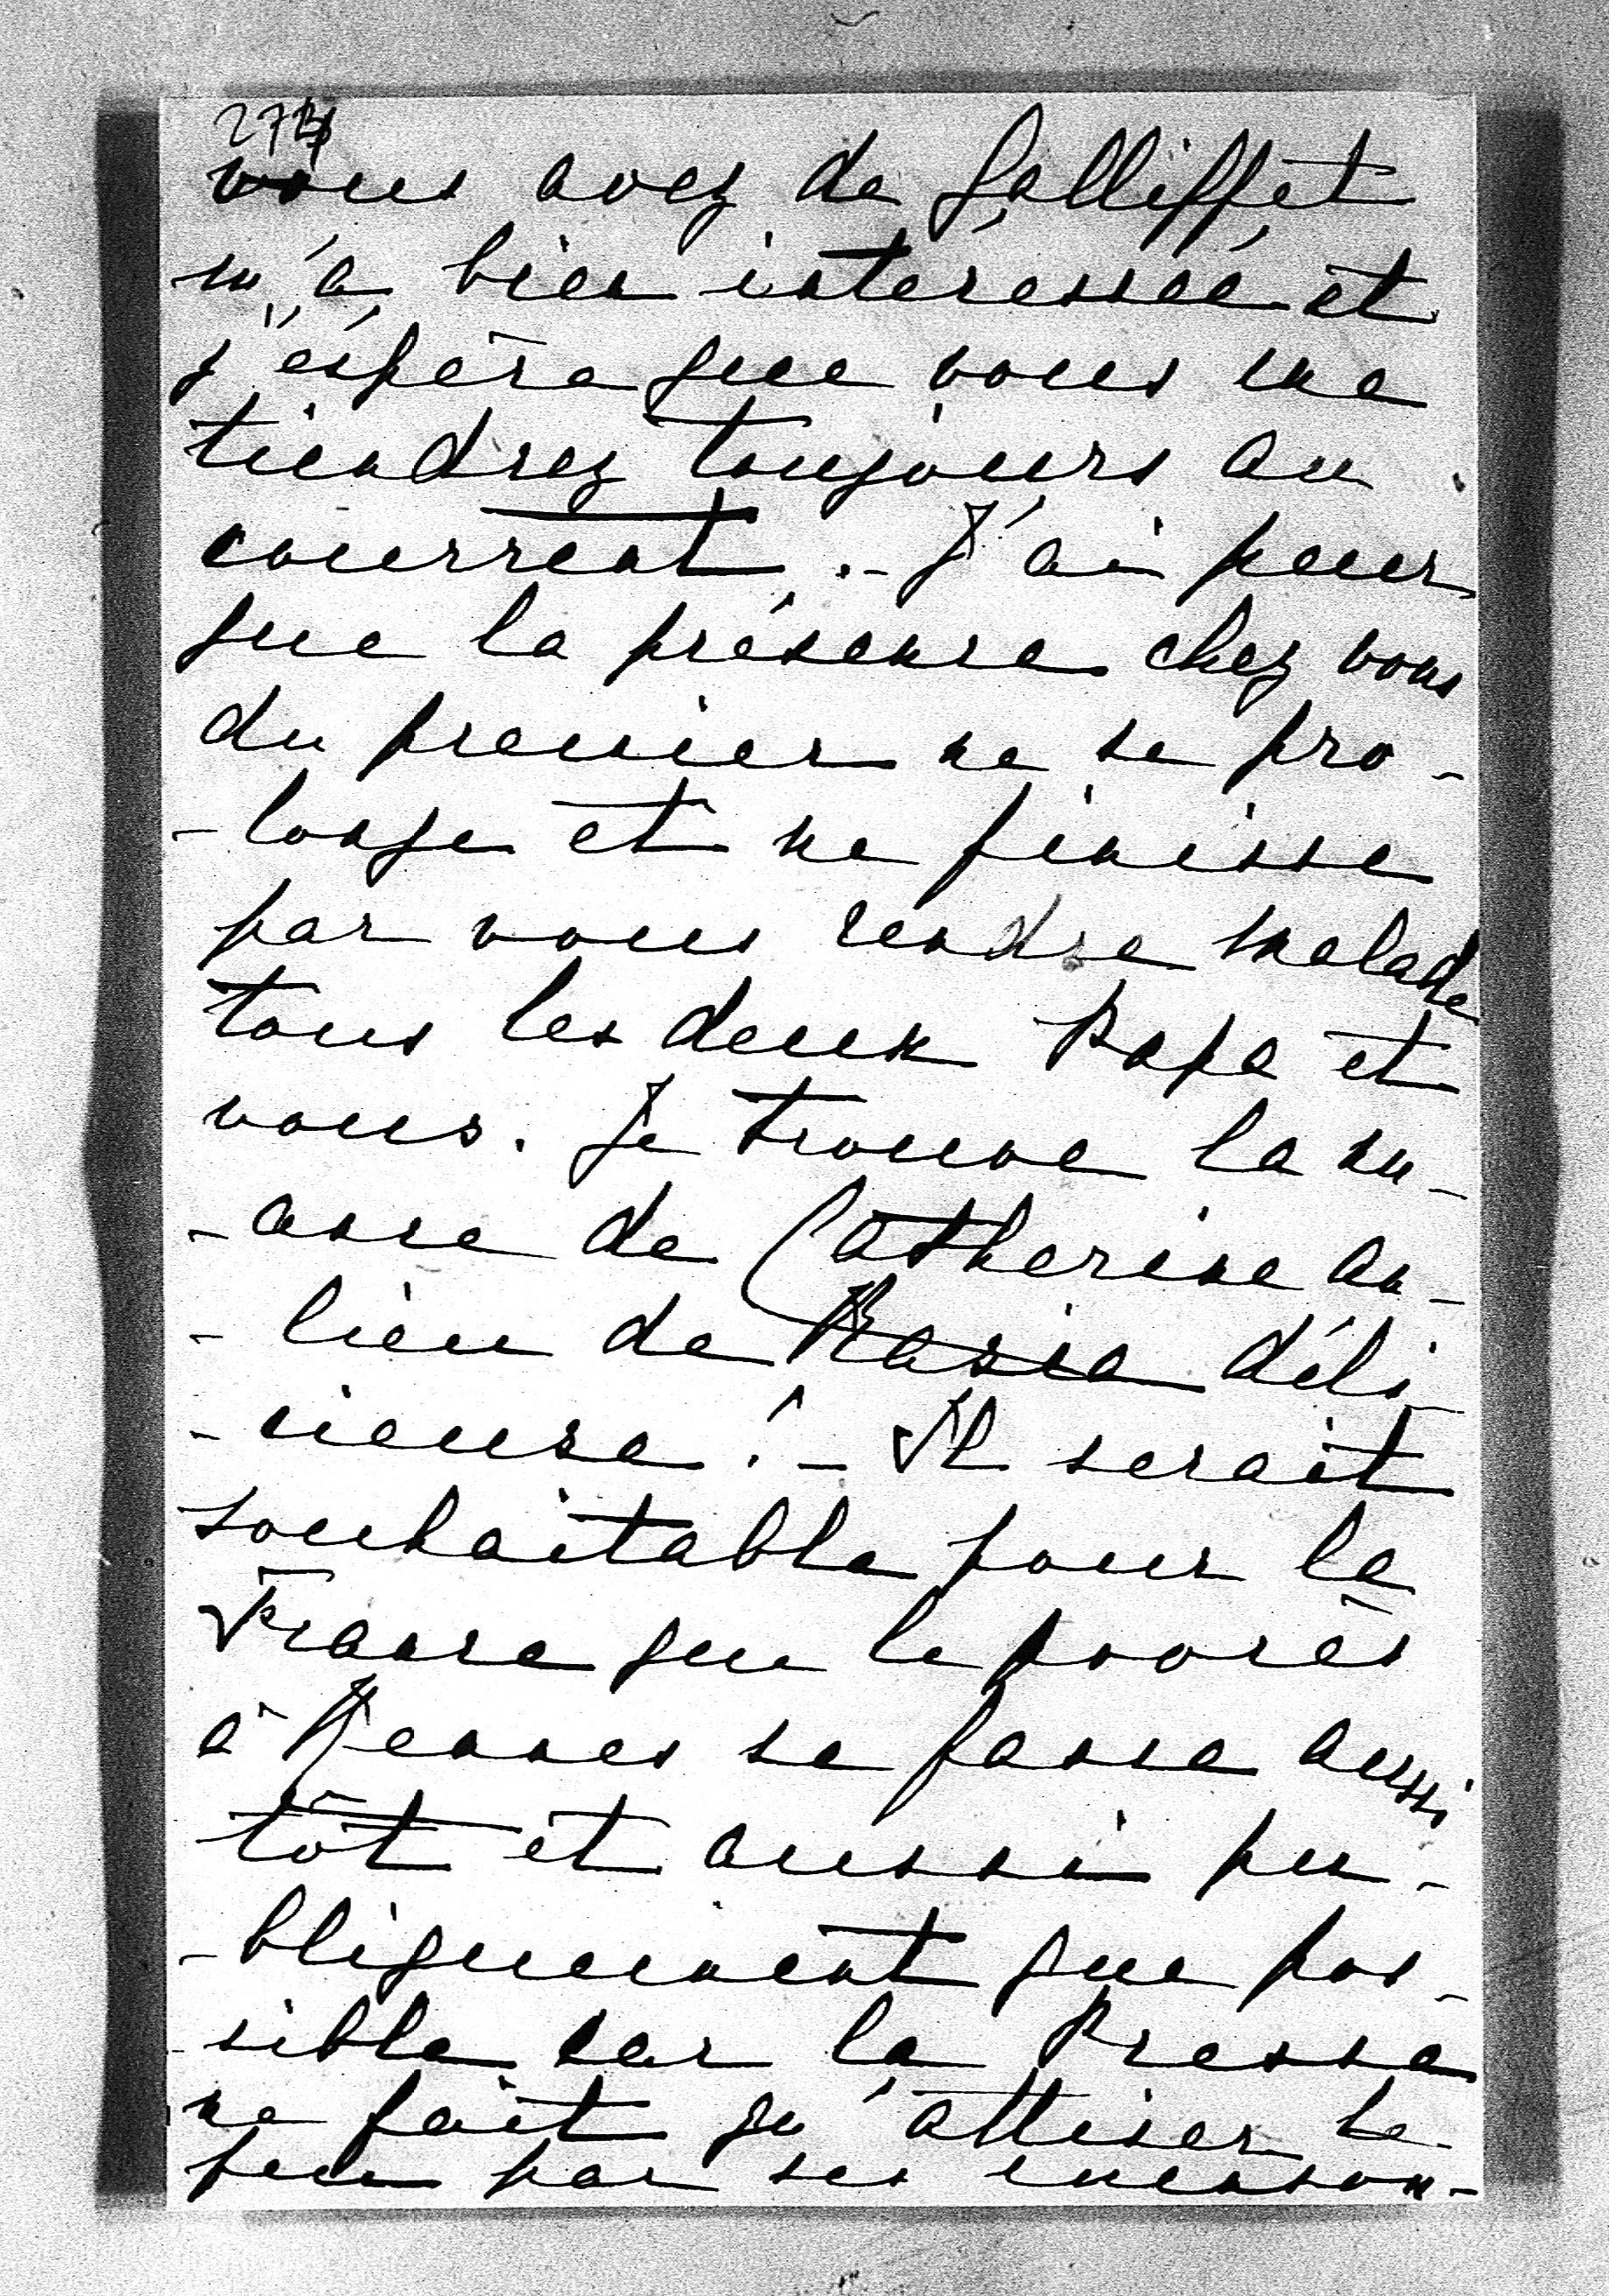 274
vous avez de Galliffet
m'a bien intéressée et
j'éspère que vous me
tiendrez toujours au
courrent. - J'ai peur
que la présence chez vous
du premier ne se pro-
-longe et ne finisse
par vous rendre malade
tous les deux Papa et
vous. Je trouve la nu-
-ance de Catherine au-
-lieu de Kasia déli-
-cieuse! - Il serait
souhaitable pour la
France que le procès
à Rennes se fasse aussi
tôt et aussi pu-
-bliquement que pos-
-sible car la Presse
ne fait qu'attiser le
feu par ses menson-